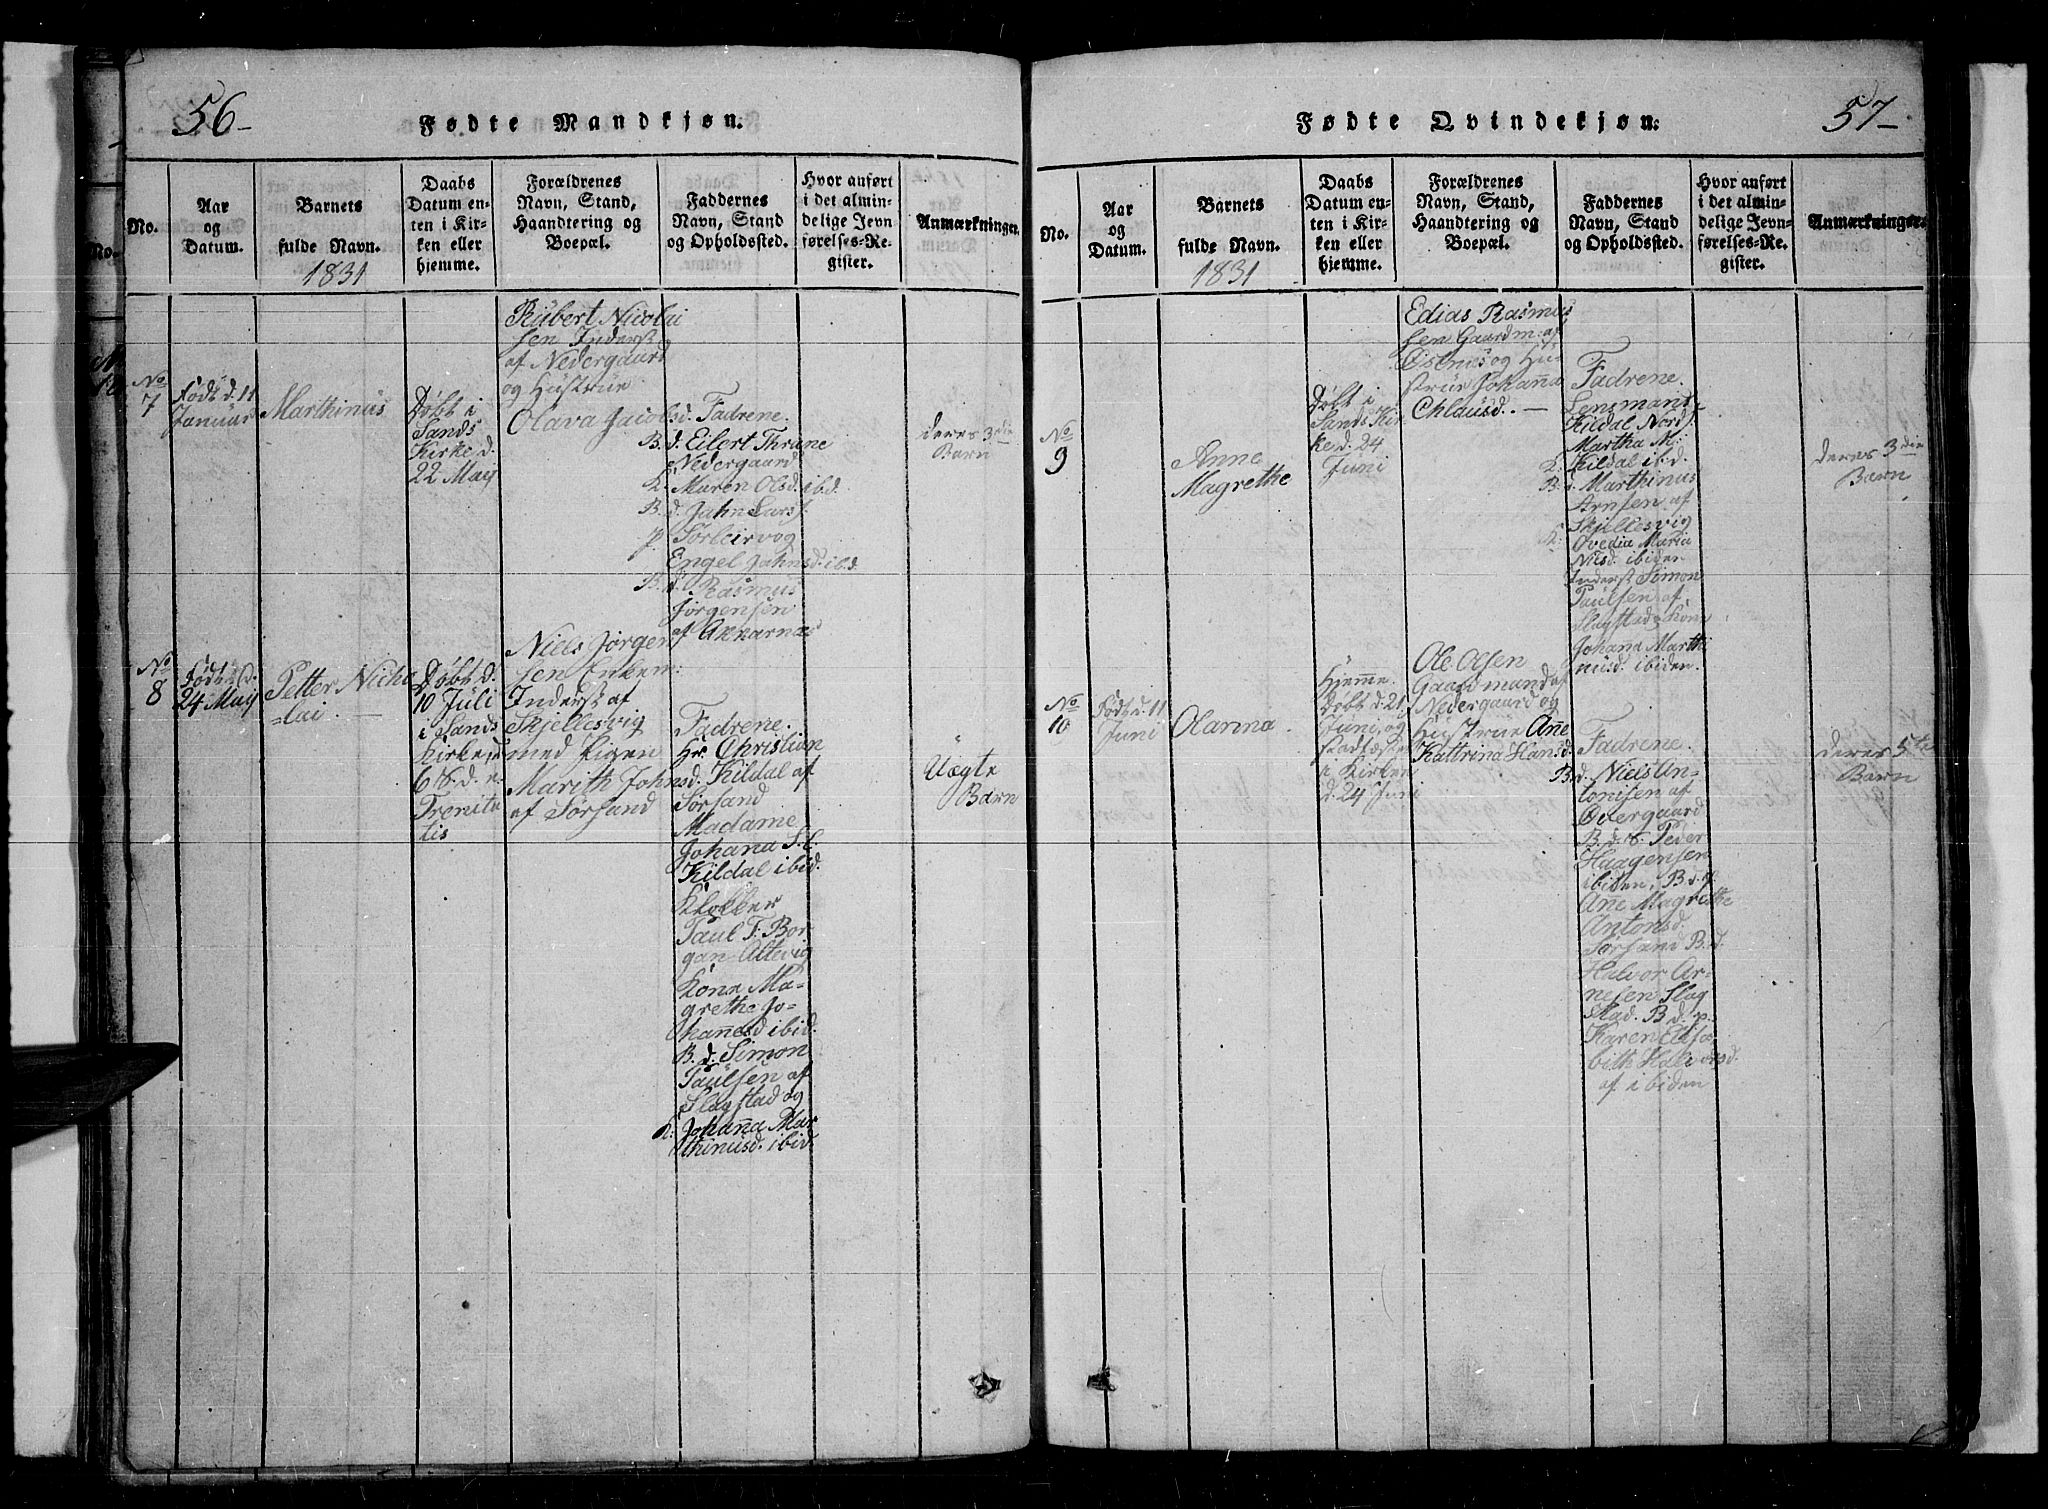 56-
Fødte Mandkjøn.
No.
Aar
og
Datum.
Barnets
fulde Navn.
1831
Daabs
Datum en-
ten i Kir-
ken eller
hjemme.
Forældrenes
Navn, Stand,
Haandtering og
Boepæl.
Faddernes
Navn, Stand
og Opholdssted.
Hvor anført
i det almin-
delige Jevn
førelses-Re-
gister.
Anmærkninger.
No
7
Født d. 11
Januar
Marthinus
Døbt i
Sands
Kirke d.
22 Maij
Rubert Nicolai
sen Inderst
af Nedergaard
og Hustrue
Olava Jacobsd.
Fadrene.
B. d. Eilert Thrane
Nedergaard
K. Maren Olsd. ibd.
B. d. Jahn Lars
p. Sørleirvog
Engel Jahnsd. ib.d.
B. d. Rasmus
Jørgensen
af Aakarnæs
deres 3die
Barn
No
8
Født d.
24 Maij
Petter Nicho
-lai. —
Døbt d.
10 Juli
i Sands
Kirke
6 S. d. e.
Trenita
tis
Niels Jørgen
sen Enkem:
Inderst af
Skjellesvig
med Pigen
Marith Johnsd.
af Sørsand
Fadrene.
Hr. Christian
Kildal af
Sørsand
Madame
Johana S. C.
Kildal ibid.
Klokker
Paul T. Bor
gan Altevig
Kone Ma-
grethe Jo-
hanesd ibid.
B. d. Simon
Paulsen af
Slagstad og
K. Johana Mar
thinusd. ibid.
Uægte
Barn
57-
Fødte Qvindekjøn.
No.
Aar
og
Datum.
Barnets
fulde Navn.
1831
Daabs
Datum en-
ten i Kir-
ken eller
hjemme.
Forældrenes
Navn, Stand,
Haandtering og
Boepæl.
Faddernes
Navn, Stand
og Opholdssted.
Hvor anført
i det almin-
delige Jevn-
førelses-Re-
gister.
Anmærkninger.
No
9
Anne
Magrethe
Døbt i
Sands Kir
ke d. 24
Juni
Edias Rasmus
sen Gaardm. af
Østnes og Hu
strue Johana
Chlausd. —
Fadrene.
Lensmand
Kildal Nord
Martha M:
K: Kildal ib.d.
B. d. Marthinus
Arnsen af
Skjellesvig
K: Ovedia Maria
Nilsd. ibiden
Inderst Simon
Paulsen af
Slagstad og Kone
Johana Marthi
nusd. ibiden.
deres 3die
Barn
No
10
Født d. 11
Juni
Olanna
Hjemme
Døbt d. 21
Juni, og
stadfæstet
i Kirken
d. 24 Juni
Ole Olsen
Gaardmand af
Nedergaard og
Hustrue Ane
Kattrina Hansd.
Fadrene.
B. d. Niels An-
tonisen af
Overgaard
B. d. S. Peder
Haagensen
ibiden. B. d. p.
Ane Magrethe
Antonsd.
Sørsand B. d.
Halvor Ar-
nesen Slag
stad. B. d. p.
Karen Elisa
bith Halvorsd.
af ibiden
deres 5te
Barn